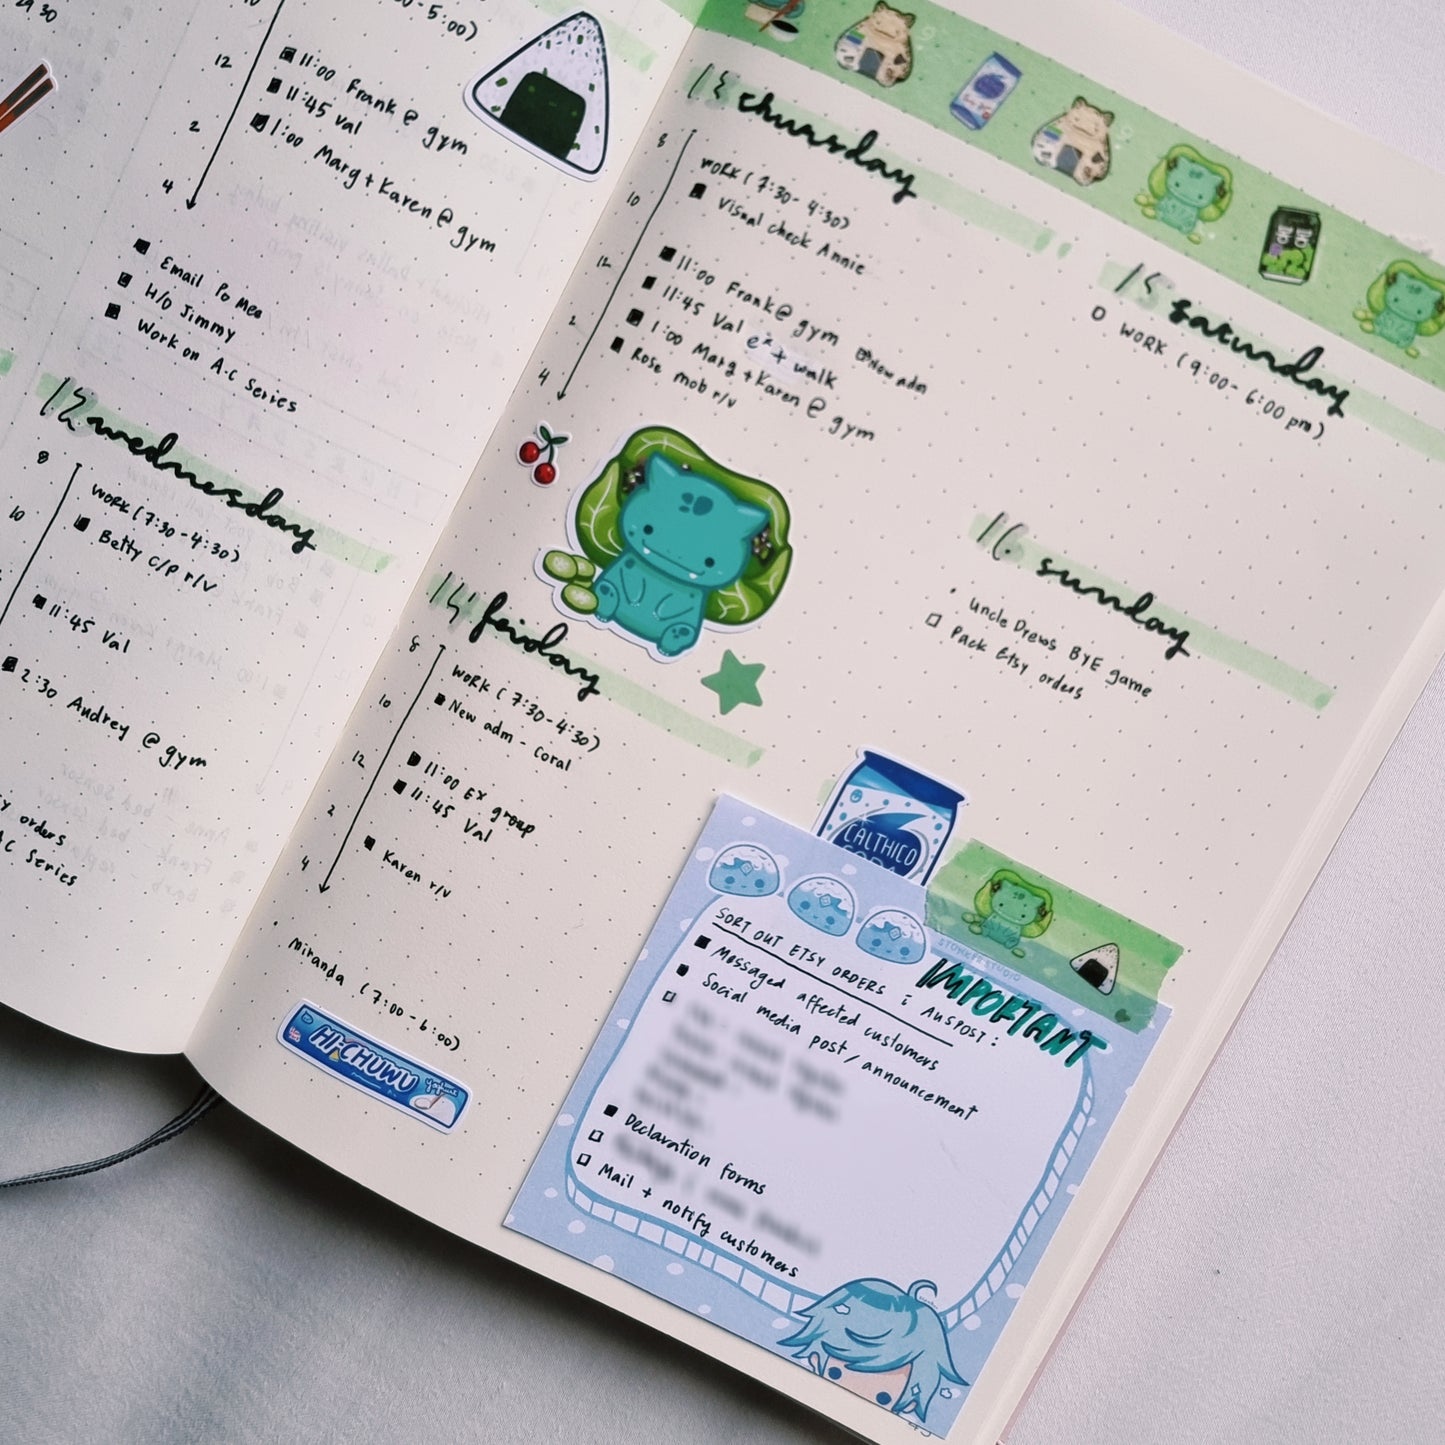 29.30
10
12
2
4
-5:00)
11:00 Frank @ gym
11:45 Val
1:00 Marg + Karen @ gym
Email Po Mea
H/O Jimmy
Work on A.C Series
12 wednesday
8
10
WORK (7:30-4:30)
Betty C/P r/v
11:45 Val
2:30 Audrey @ gym
orders
C Series
13 thursday
8
10
12
2
4
WORK (7:30-4:30)
Visual check Annie
11:00 Frank @ gym
11:45 Val e² + walk
New adm
1:00 Marg + Karen @ gym
Rose mob r/v
14 friday
8
10
12
2
4
WORK (7:30-4:30)
New adm - Coral
11:00 Ex group
11:45 Val
Karen r/v
Miranda (7:00-6:00)
HI-CHUWU
15 saturday
WORK (9:00-6:00 pm)
16 sunday
Uncle Drews BYE game
Pack Etsy orders
CALTHICO
SODA
IMPORTANT
SORT OUT ETSY ORDERS & AUSPOST:
Messaged affected customers
Social media post/announcement
Declaration forms
Mail + notify customers